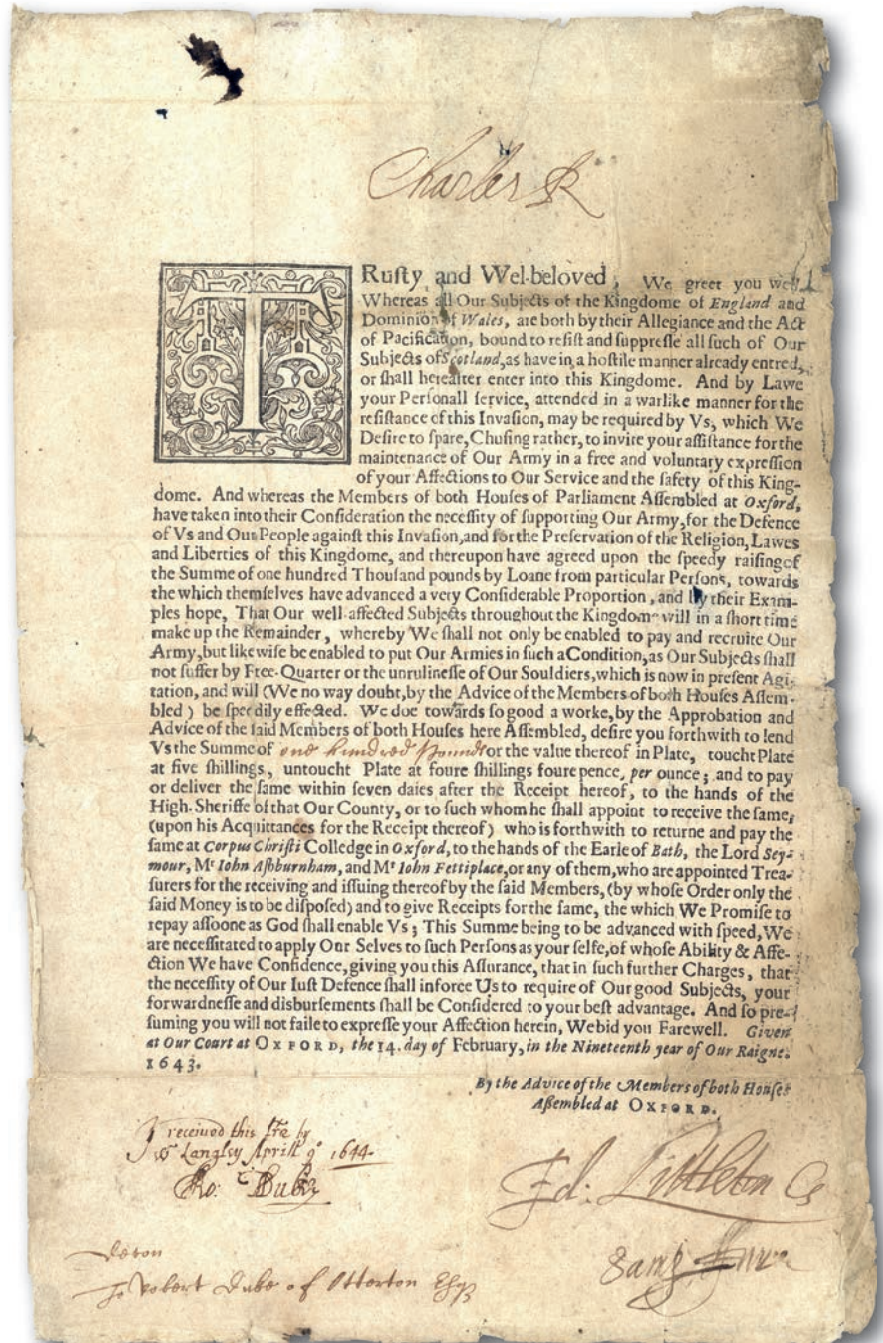 Charles R
TRusty and Wel-beloved, We greet you well.
Whereas all Our Subjects of the Kingdome of England and
Dominion of Wales, are both by their Allegiance and the Act
of Pacification, bound to resist and suppresse all such of Our
Subjects of Scotland, as have in a hostile manner already entred,
or shall hereafter enter into this Kingdome. And by Lawe
your Personall service, attended in a warlike manner for the
resistance of this Invasion, may be required by Vs, which We
Desire to spare, Chusing rather, to invite your assistance for the
maintenance of Our Army in a free and voluntary expression
of your Affections to Our Service and the safety of this King-
dome. And whereas the Members of both Houses of Parliament Assembled at Oxford,
have taken into their Consideration the necessity of supporting Our Army, for the Defence
of Vs and Our People against this Invasion, and for the Preservation of the Religion, Lawes
and Liberties of this Kingdome, and thereupon have agreed upon the speedy raising of
the Summe of one hundred Thousand pounds by Loane from particular Persons, towards
the which themselves have advanced a very Considerable Proportion, and by their Exam-
ples hope, That Our well-affected Subjects throughout the Kingdome will in a short time
make up the Remainder, whereby We shall not only be enabled to pay and recruite Our
Army, but likewise be enabled to put Our Armies in such a Condition, as Our Subjects shall
not suffer by Free-Quarter or the unrulinesse of Our Souldiers, which is now in present Agi-
tation, and will (We no way doubt, by the Advice of the Members of both Houses Assem-
bled) be speedily effected. We doe towards so good a worke, by the Approbation and
Advice of the said Members of both Houses here Assembled, desire you forthwith to lend
Vs the Summe of one hundred pounds or the value thereof in Plate, toucht Plate
at five shillings, untoucht Plate at foure shillings foure pence, per ounce; and to pay
or deliver the same within seven daies after the Receipt hereof, to the hands of the
High-Sheriffe of that Our County, or to such whom he shall appoint to receive the same,
(upon his Acquittances for the Receipt thereof) who is forthwith to returne and pay the
same at Corpus Christi Colledge in Oxford, to the hands of the Earle of Bath, the Lord Sey-
mour, Mr Iohn Ashburnham, and Mr Iohn Fettiplace, or any of them, who are appointed Trea-
surers for the receiving and issuing thereof by the said Members, (by whose Order only the
said Money is to be disposed) and to give Receipts for the same, the which We Promise to
repay assoone as God shall enable Vs; This Summe being to be advanced with speed, We
are necessitated to apply Our Selves to such Persons as your selfe, of whose Ability & Affe-
ction We have Confidence, giving you this Assurance, that in such further Charges, that
the necessity of Our Iust Defence shall inforce Us to require of Our good Subjects, your
forwardnesse and disbursements shall be Considered to your best advantage. And so pre-
suming you will not faile to expresse your Affection herein, We bid you Farewell. Given
at Our Court at OXFORD, the 14. day of February, in the Nineteenth year of Our Raigne.
1643.
By the Advice of the Members of both Houses
Assembled at OXFORD.
I received this by
Langley Aprill 9 1644
Ro: Duke
Ed: Littleton
Devon
To Robert Duke of Otterton Esq